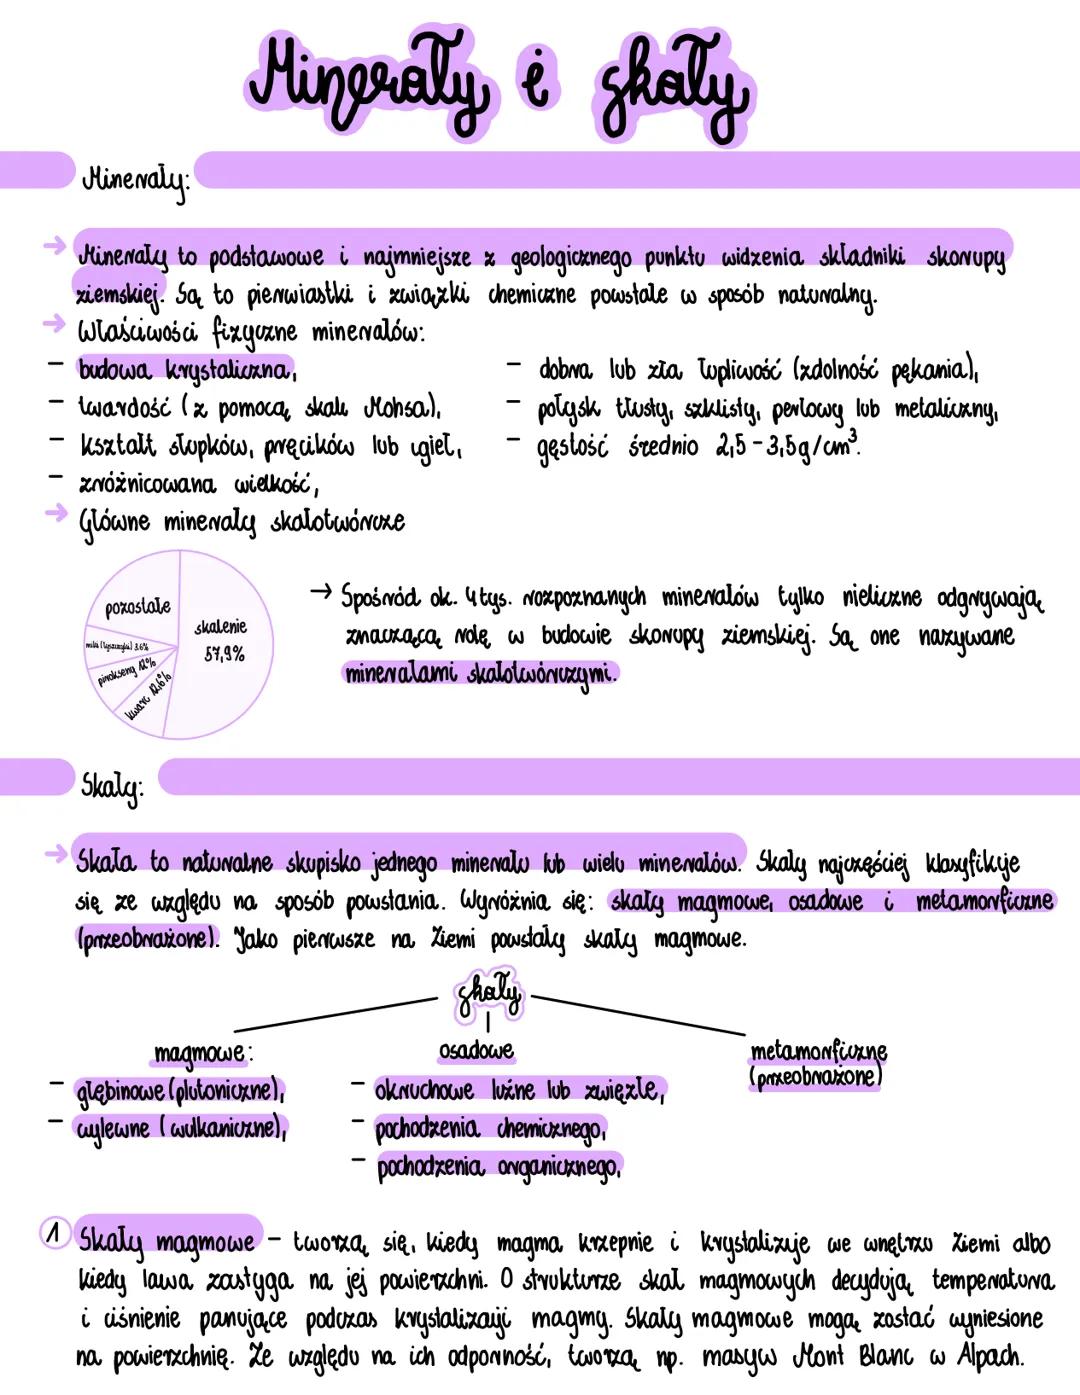 Minerały i skały
Minerały:
→ Minerały to podstawowe i najmniejsze z geologicznego punktu widzenia składniki skorupy
ziemskiej. Są to pierwiastki i związki chemiczne powstałe w sposób naturalny.
→ Właściwości fizyczne minerałów:
- budowa krystaliczna,
- twardość (z pomocą skali Mohsa),
- kształt słupków, pręcików lub igieł,
- zróżnicowana wielkość,
- dobra lub zła łupliwość (zdolność pękania),
- połysk tłusty, szklisty, perłowy lub metaliczny,
- gęstość średnio 2,5-3,5g/cm³.
→ Główne minerały skałotwórcze
pozostałe
skalenie
57,9%
miki (łyszczyki) 3.6%
pirokseny 12%
kwarc 12,6%
→ Spośród ok. 4 tys. rozpoznanych minerałów tylko nieliczne odgrywają
znaczącą rolę w budowie skorupy ziemskiej. Są one nazywane
minerałami skałotwórczymi.
Skały:
→ Skała to naturalne skupisko jednego minerału lub wielu minerałów. Skały najczęściej klasyfikuje
się ze względu na sposób powstania. Wyróżnia się: skały magmowe, osadowe i metamorficzne
(przeobrażone). Jako pierwsze na Ziemi powstały skały magmowe.
skały
magmowe:
- głębinowe (plutoniczne),
- wylewne (wulkaniczne),
osadowe
- okruchowe luźne lub zwięzłe,
- pochodzenia chemicznego,
- pochodzenia organicznego,
metamorficzne
(przeobrażone)
1 Skały magmowe - tworzą się, kiedy magma krzepnie i krystalizuje we wnętrzu Ziemi albo
kiedy lawa zastyga na jej powierzchni. O strukturze skał magmowych decydują temperatura
i ciśnienie panujące podczas krystalizacji magmy. Skały magmowe mogą zostać wyniesione
na powierzchnię. Ze względu na ich odporność, tworzą np. masyw Mont Blanc w Alpach.